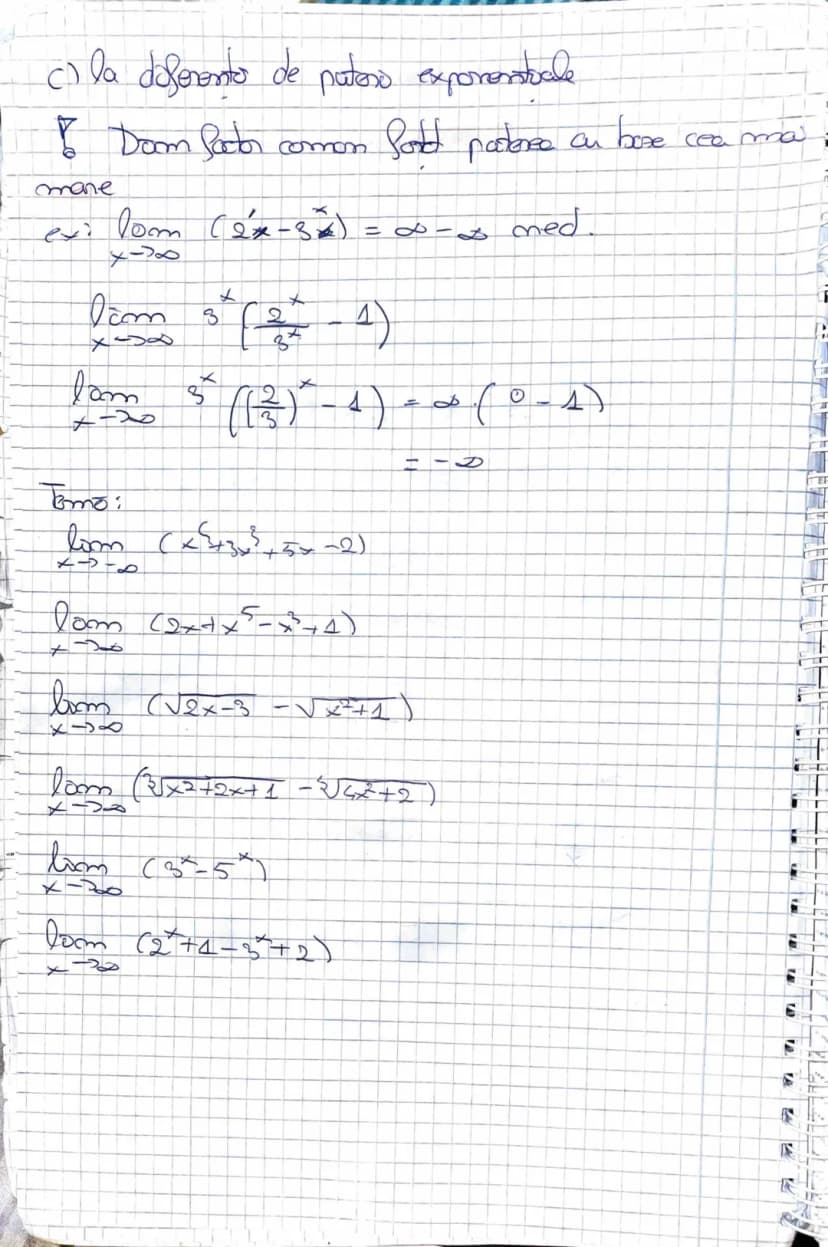 c) La diferență de puteri exponențiale
! Dăm factor comun forțat puterea cu baza cea mai
mare
ex: lim x→∞ (2^x - 3^x) = ∞ - ∞ ned.
lim x→∞ 3^x (2^x/3^x - 1)
lim x→∞ 3^x ((2/3)^x - 1) = ∞ · (0 - 1)
= -∞
Temă:
lim x→-∞ (x + 3x^3 + 5x - 2)
lim x→∞ (2x + x^5 - x^3 + 1)
lim x→∞ (√(2x-3) - √(x^2+1))
lim x→∞ (∛(x^2+2x+1) - √(x^2+2))
lim x→∞ (3^x - 5^x)
lim x→∞ (2^x + 1 - 3^x + 2)